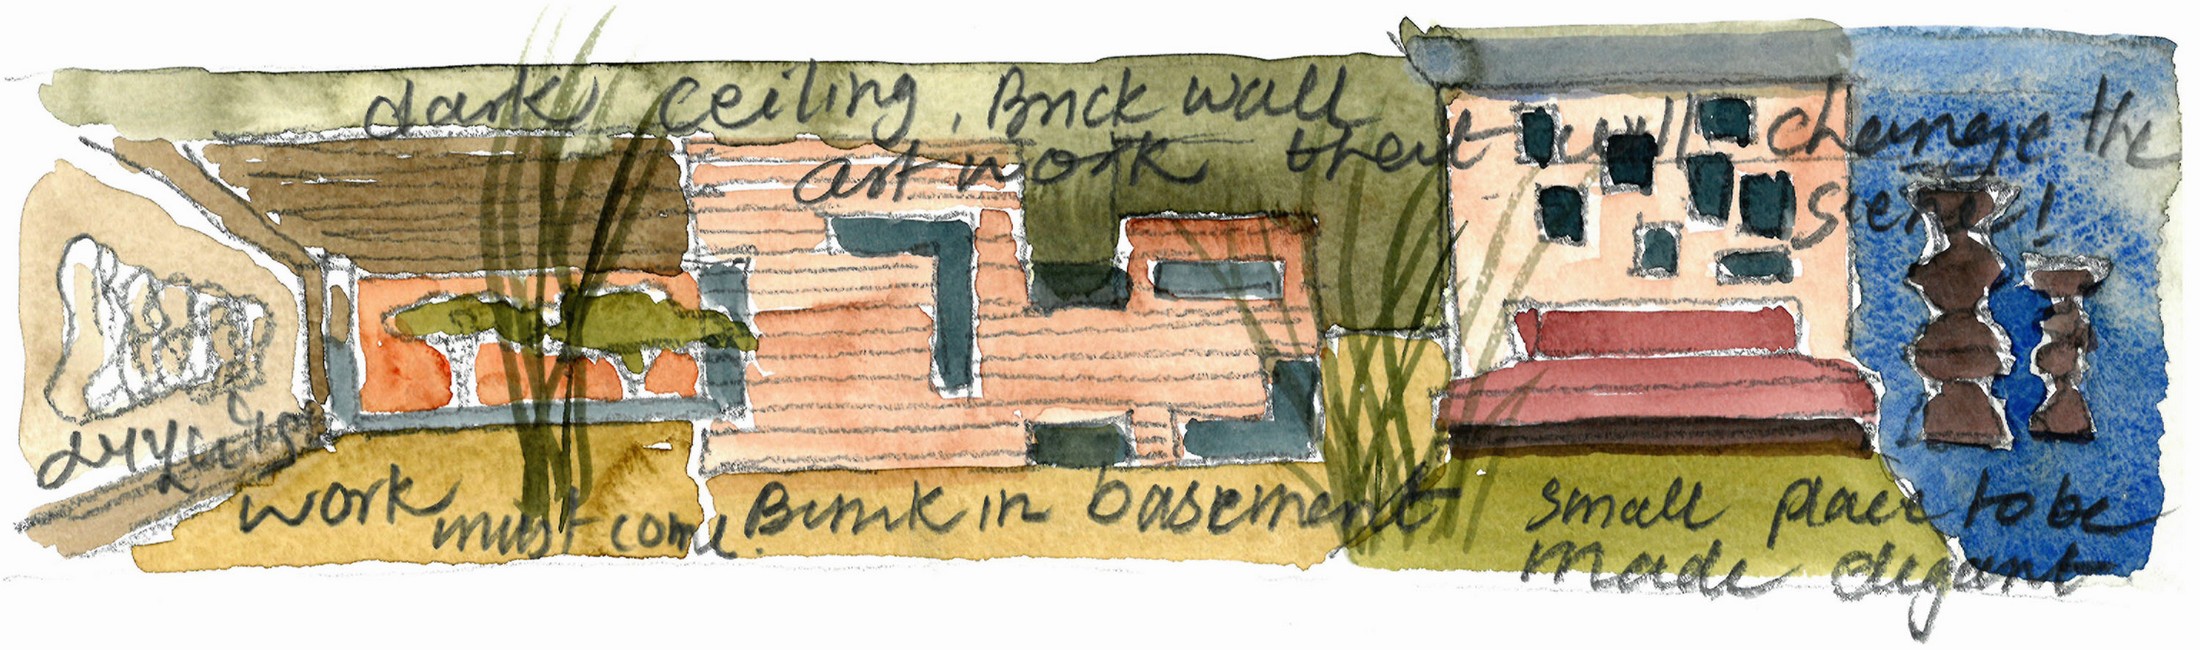 dark ceiling, Brick wall
art work that will change the
scene!
work must come.
in basement
small place to be
made elegant